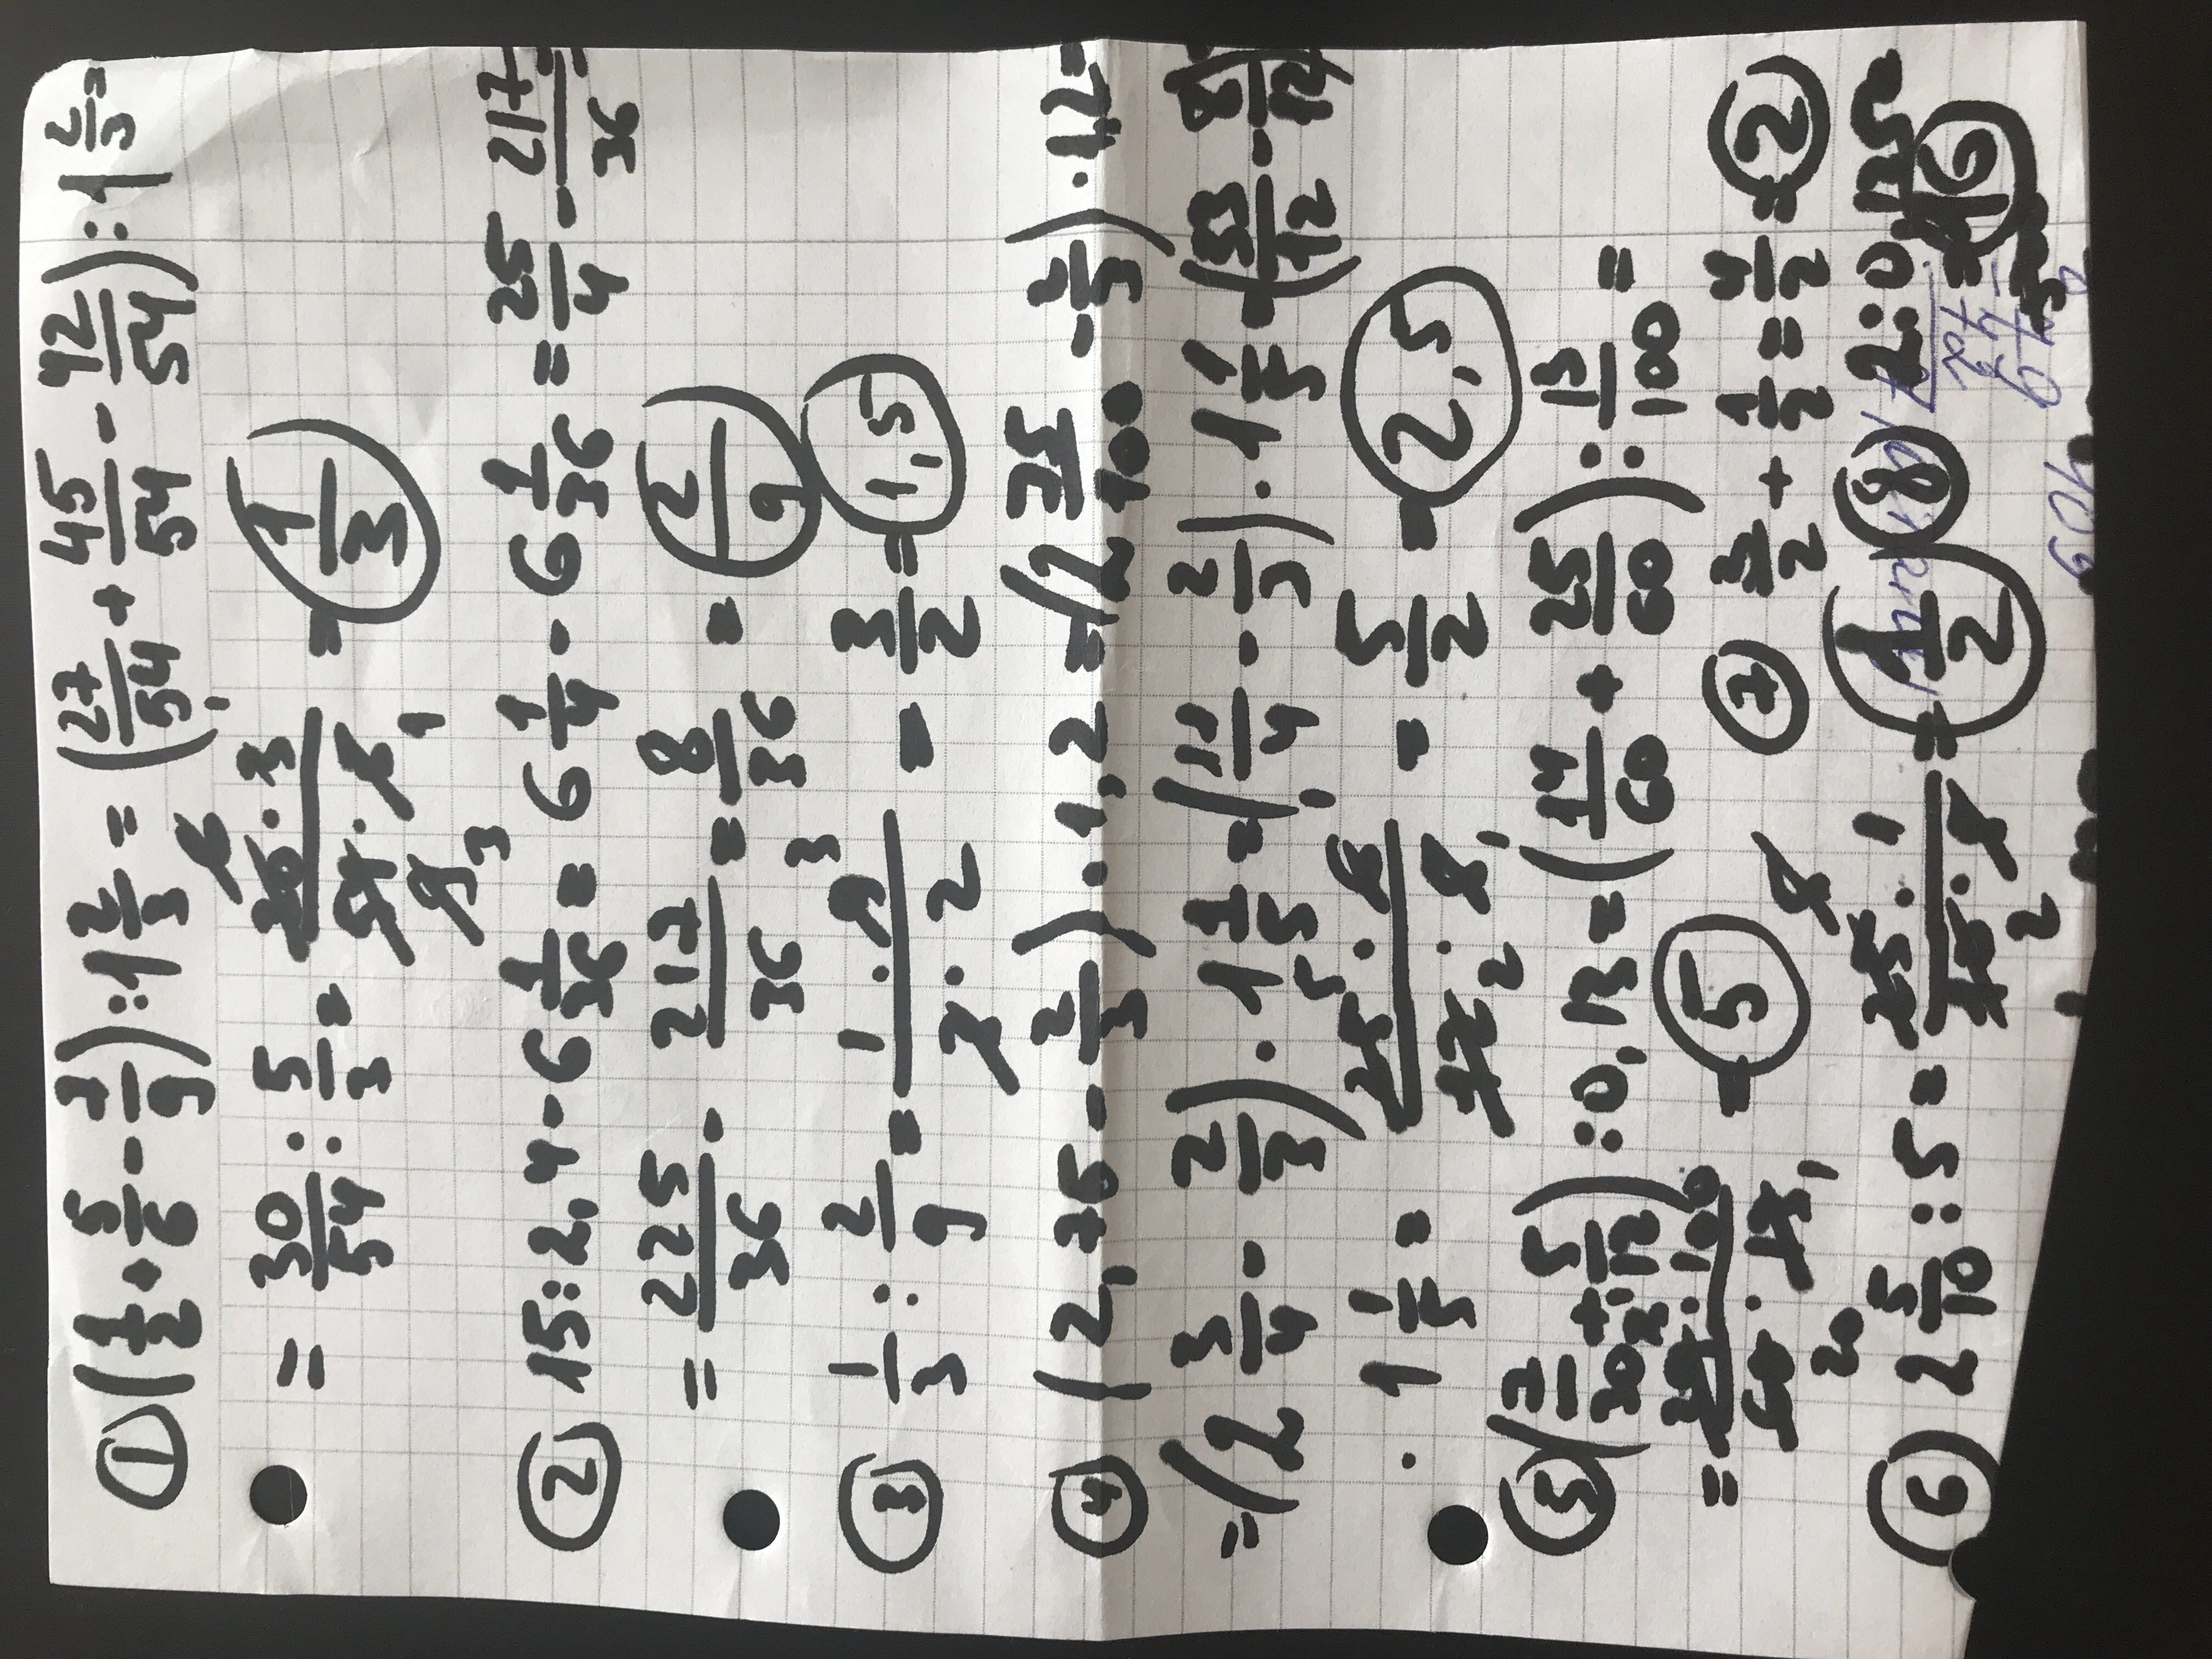 ① (1/2 + 5/6 - 7/9) : 1 2/3 = (27/54 + 45/54 - 42/54) : 1 2/3 =
= 30/54 : 5/3 = 30 · 3 / 54 · 5 = 1/3
② 15 : 2,4 - 6 1/36 = 6 1/4 - 6 1/36 = 25/4 - 217/36
= 225/36 - 217/36 = 8/36 = 2/9
③ 1/3 : 2/9 = 1 · 9 / 3 · 2 = 3/2 = 1,5
④ (2,75 - 2/3) · 1,2 = (2 75/100 - 2/3) · 1,2 =
= (2 3/4 - 2/3) · 1 1/5 = (11/4 - 2/3) · 1 1/5 = (33/12 - 8/12)
· 1 1/5 = 25 · 6 / 12 · 5 = 5/2 = 2,5
⑤ (7/30 + 5/12) : 0,13 = (14/60 + 25/60) : 13/100 =
= 39 · 100 / 60 · 13 = 5 ⑦ 3/2 + 1/2 = 4/2 = 2
⑥ 2 5/10 : 5 = 25 · 1 / 10 · 5 = 1/2 ⑧ 2 : 0,125
= 16